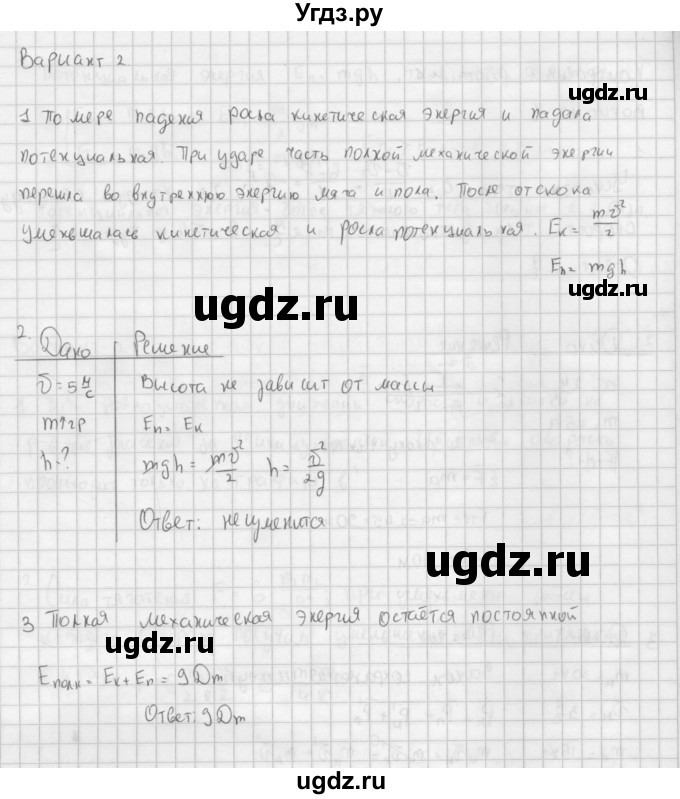 Угдз.ру
Вариант 2.
угдз.ру
1 По мере падения росла кинетическая энергия и падала
потенциальная. При ударе часть полной механической энергии
угдз.ру
перешла во внутреннюю энергию мяча и пола. После отскока
уменьшалась кинетическая и росла потенциальная. Eк = mv²/2
Eп = mgh
угдз.ру
ugdz.ru
2. Дано Решение
v = 5 м/с Высота не зависит от массы
m↑гр Eп = Eк
h-? mgh = mv²/2 h = v²/2g
ugdz.ru
Ответ: не изменится
ugdz.ru
3 Полная механическая энергия остаётся постоянной
ugdz.ru
Eполн = Eк + Eп = 9 Дж
Ответ: 9 Дж
ugdz.ru
ugdz.ru